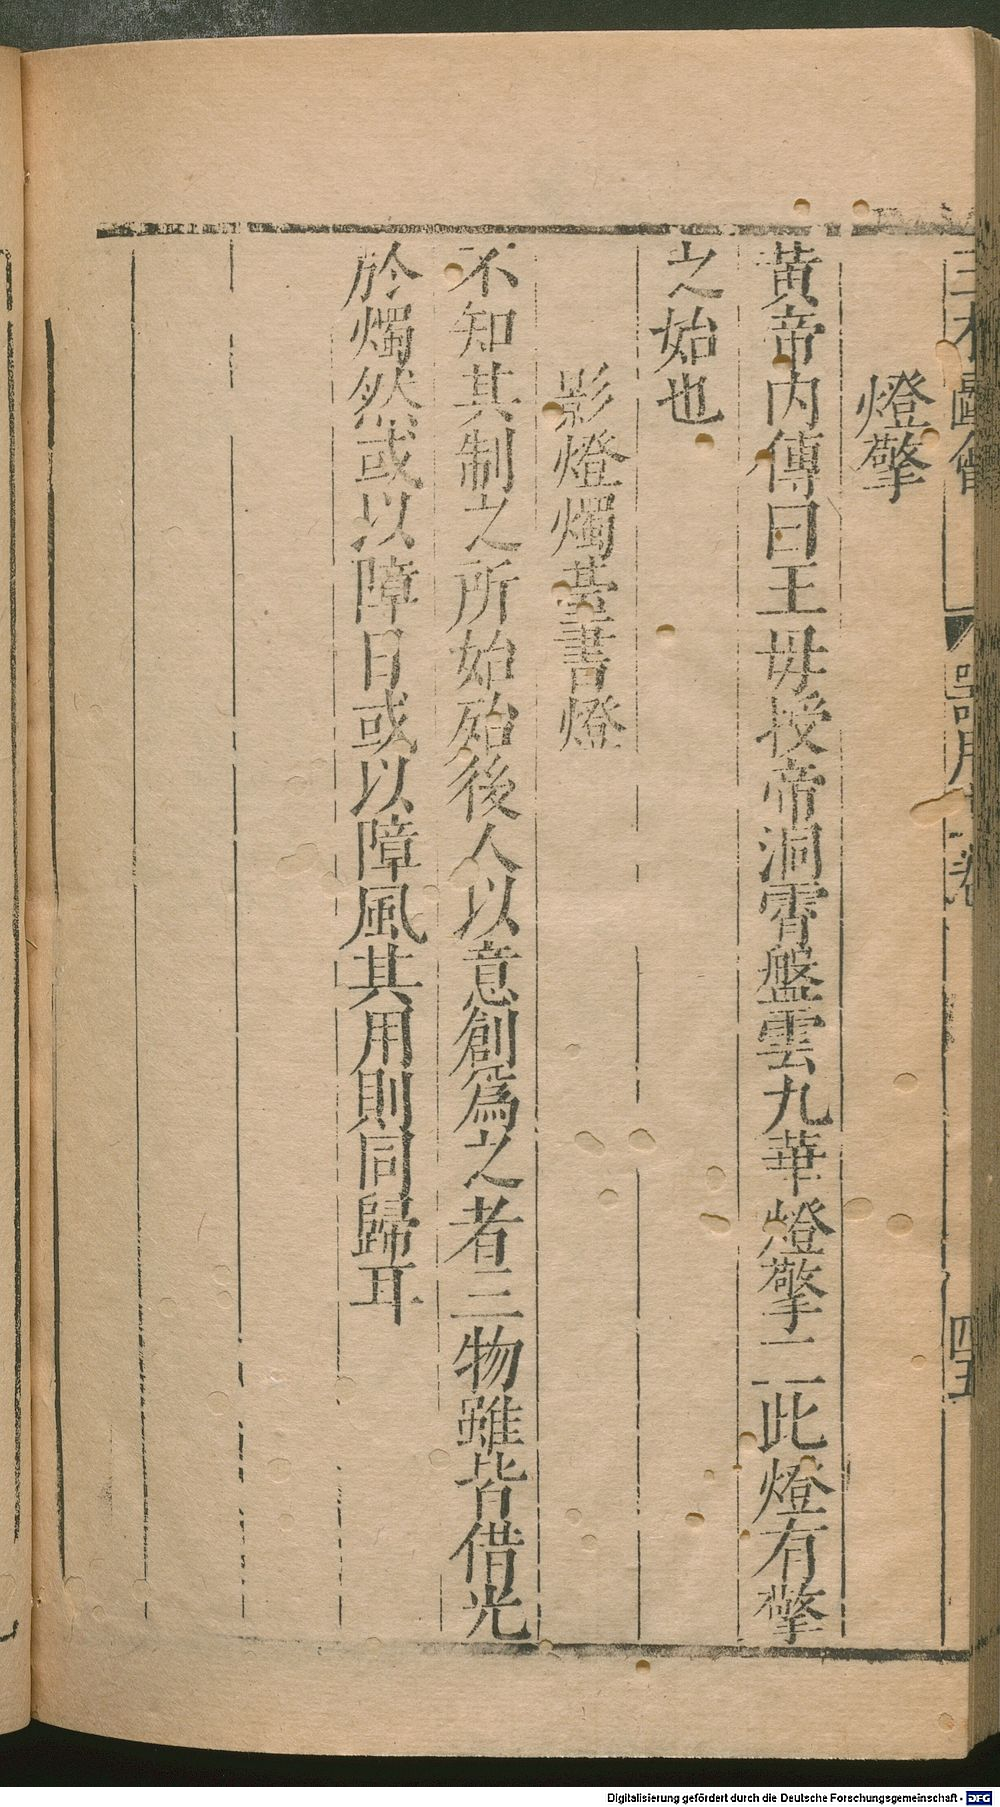 三才圖會
器用十二卷
四五
燈擎
黃帝内傳曰王毋授帝洞霄盤雲九華燈擎二此燈有擎
之始也
影燈燭臺書燈
不知其制之所始殆後人以意創爲之者三物雖皆借光
於燭然或以障日或以障風其用則同歸耳
Digitalisierung gefördert durch die Deutsche Forschungsgemeinschaft - DFG